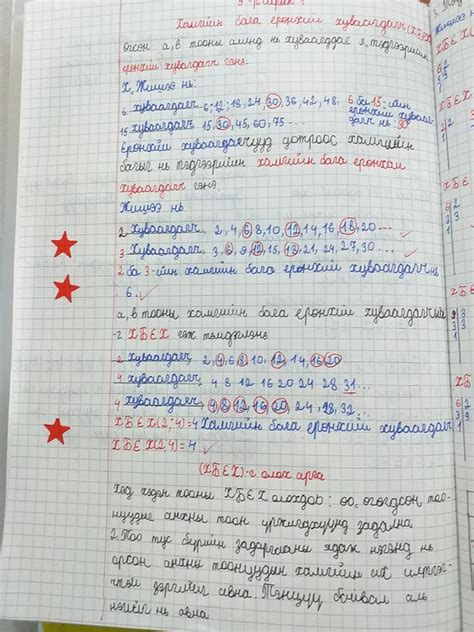 Хамгийн бага ерөнхий хуваагдагч (ХБЕХ)
Өгсөн а, в тооны алинд нь хуваагддаг тэдгээрийн
ерөнхий хуваагдагч гэнэ.
Х. Жишээ нь:
6. хуваагдагч 6; 12; 18, 24, 30, 36, 42, 48. 6 ба 15-ийн
ерөнхий хуваагдагч нь: 30
15 хуваагдагч 15, 30, 45, 60, 75...
Ерөнхий хуваагдагчууд дотроос хамгийн
багыг нь тэдгээрийн хамгийн бага ерөнхий
хуваагдагч гэнэ.
Жишээ нь
2 Хуваагдагч 2, 4, 6, 8, 10, 12, 14, 16, 18, 20...
3 Хуваагдагч 3, 6, 9, 12, 15, 18, 21, 24, 27, 30...
2 ба 3-ийн хамгийн бага ерөнхий хуваагдагч нь
6.
а, в тооны хамгийн бага ерөнхий хуваагдагч
-г ХБЕХ гэж тэмдэглэнэ
2 хуваагдагч 2, 4, 6, 8, 10, 12, 14, 16 20
4 хуваагдагч, 4 8 12 16 20 24 28 31...
4 хуваагдагч, 4 8 12, 16, 20, 24, 28, 32...
ХБЕХ (2; 4) = 4 Хамгийн бага ерөнхий хуваагдагч
ХБЕХ (2,4) = 4
(ХБЕХ)-г олох арга
Хэд хэдэн тооны ХБЕХ олохдоо: өгөгдсөн тоо-
нуудыг анхны тоон үржигдэхүүнд задална
2. Тоо тус бүрийн задаргааны ядаж нэгэнд нь
орсон анхны тоонуудын хамгийн их илтгэгч-
тэй зэргийг авна. Тэнцүү бөгөөд аль
нэгийг нь авна